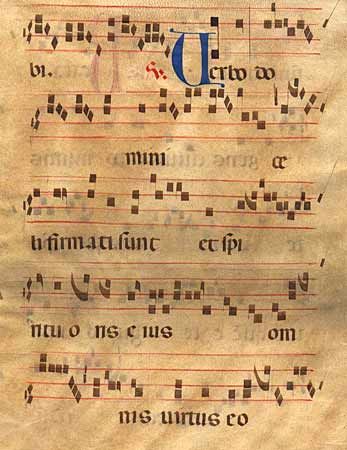 bi. V. Verbo do
mini ce
li firmati sunt et spi
ritu oris eius om
nis virtus eo